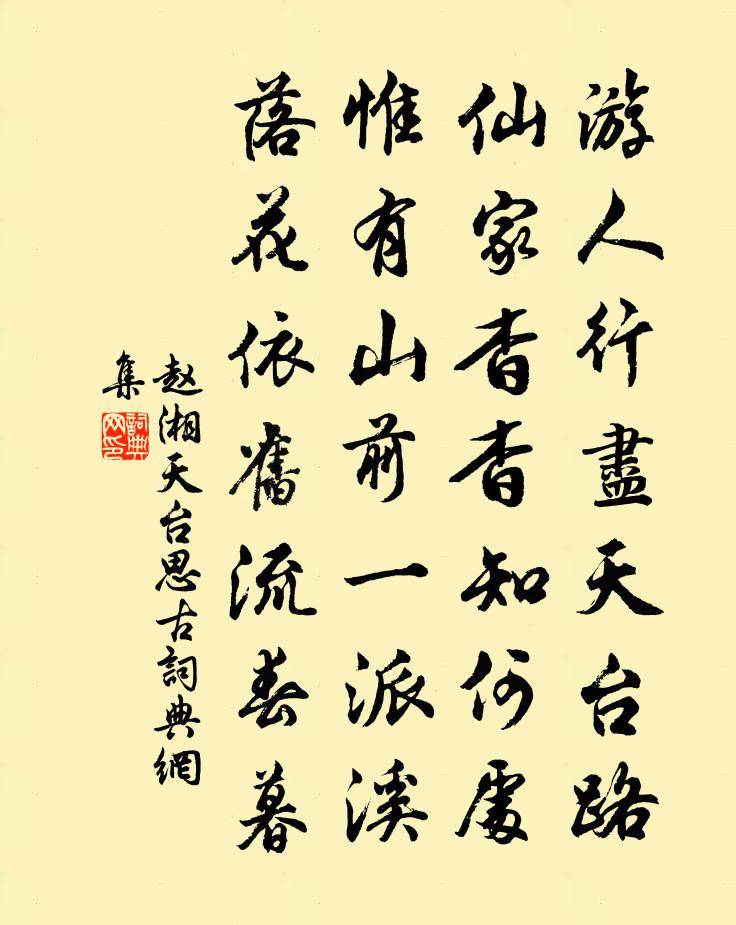 游人行盡天台路
仙家杳杳知何處
惟有山前一派溪
落花依舊流春暮
赵湘天台思古詞典網
集
詞典
网印